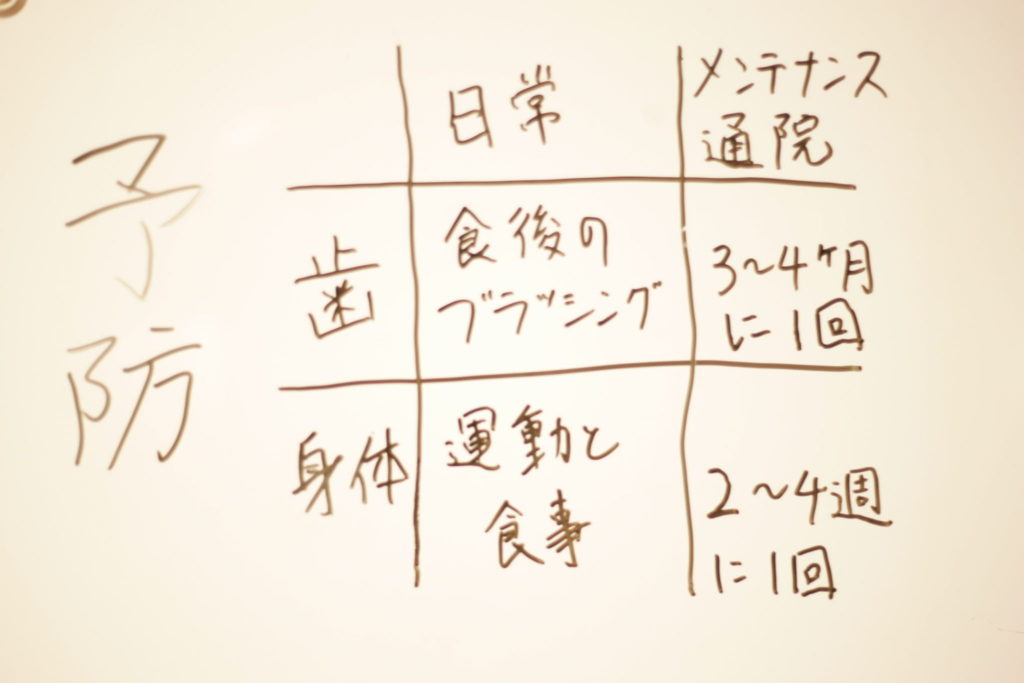 予防
日常
メンテナンス
通院
歯
食後の
ブラッシング
3〜4ヶ月
に1回
身体
運動と
食事
2〜4週
に1回